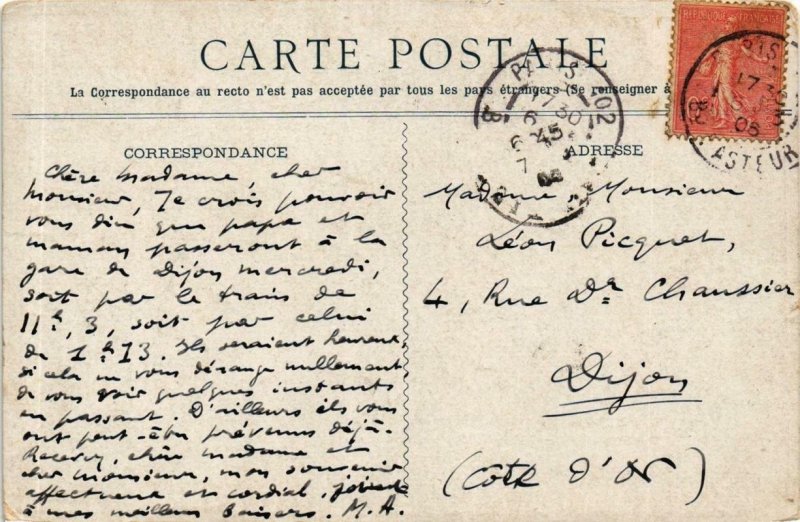 CARTE POSTALE
La Correspondance au recto n'est pas acceptée par tous les pays étrangers (Se renseigner à
CORRESPONDANCE
Chère Madame, cher
Monsieur, Je crois pouvoir
vous dire que papa et
maman passeront à la
gare de Dijon mercredi,
soit par le train de
11h, 3, soit par celui
de 1h 13. Ils seraient heureux,
si cela ne vous dérange nullement,
de vous voir quelques instants
en passant. D'ailleurs ils vous
ont peut-être prévenus déjà.
Recevez, chère madame et
cher monsieur, mon souvenir
affectueux et cordial, joint
à mes meilleurs baisers. M.A.
ADRESSE
Madame, Monsieur
Léon Picquet,
4, Rue Dr Chaussier
Dijon
(Côte d'Or)
REPUBLIQUE FRANÇAISE
PARIS
17 30
6
PASTEUR